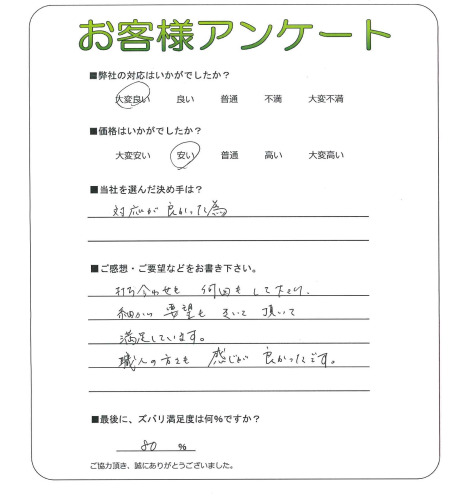 お客様アンケート
■弊社の対応はいかがでしたか？
大変良い 良い 普通 不満 大変不満
■価格はいかがでしたか？
大変安い 安い 普通 高い 大変高い
■当社を選んだ決め手は？
対応が良かった為
■ご感想・ご要望などをお書き下さい。
打ち合わせも 何回もして下さり、
細かい 要望も きいて 頂いて
満足しています。
職人の方々も 感じが 良かったです。
■最後に、ズバリ満足度は何%ですか？
80 %
ご協力頂き、誠にありがとうございました。